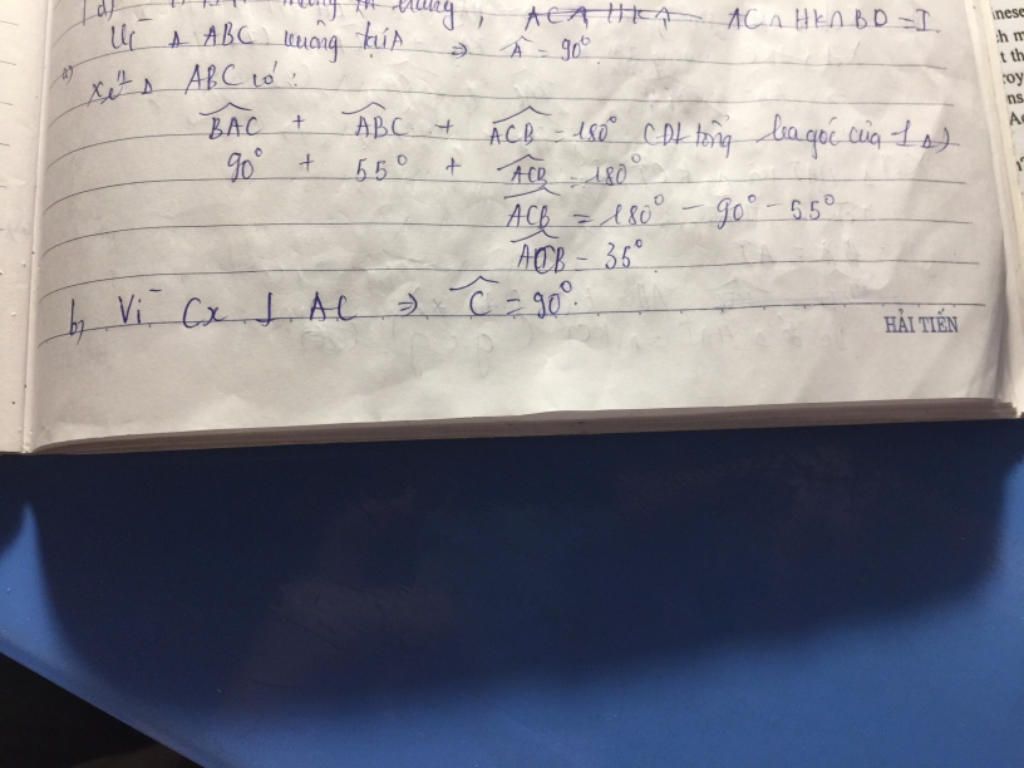 d)
trung, ACA HKA AC ∩ HK ∩ BD = I
Vì Δ ABC vuông tại A ⇒ Â = 90°
a) Xét Δ ABC có:
BAC + ABC + ACB = 180° (ĐL tổng ba góc của 1 Δ)
90° + 55° + ACB = 180°
ACB = 180° - 90° - 55°
ACB = 35°
b, Vì Cx ⊥ AC ⇒ C = 90°.
HẢI TIẾN